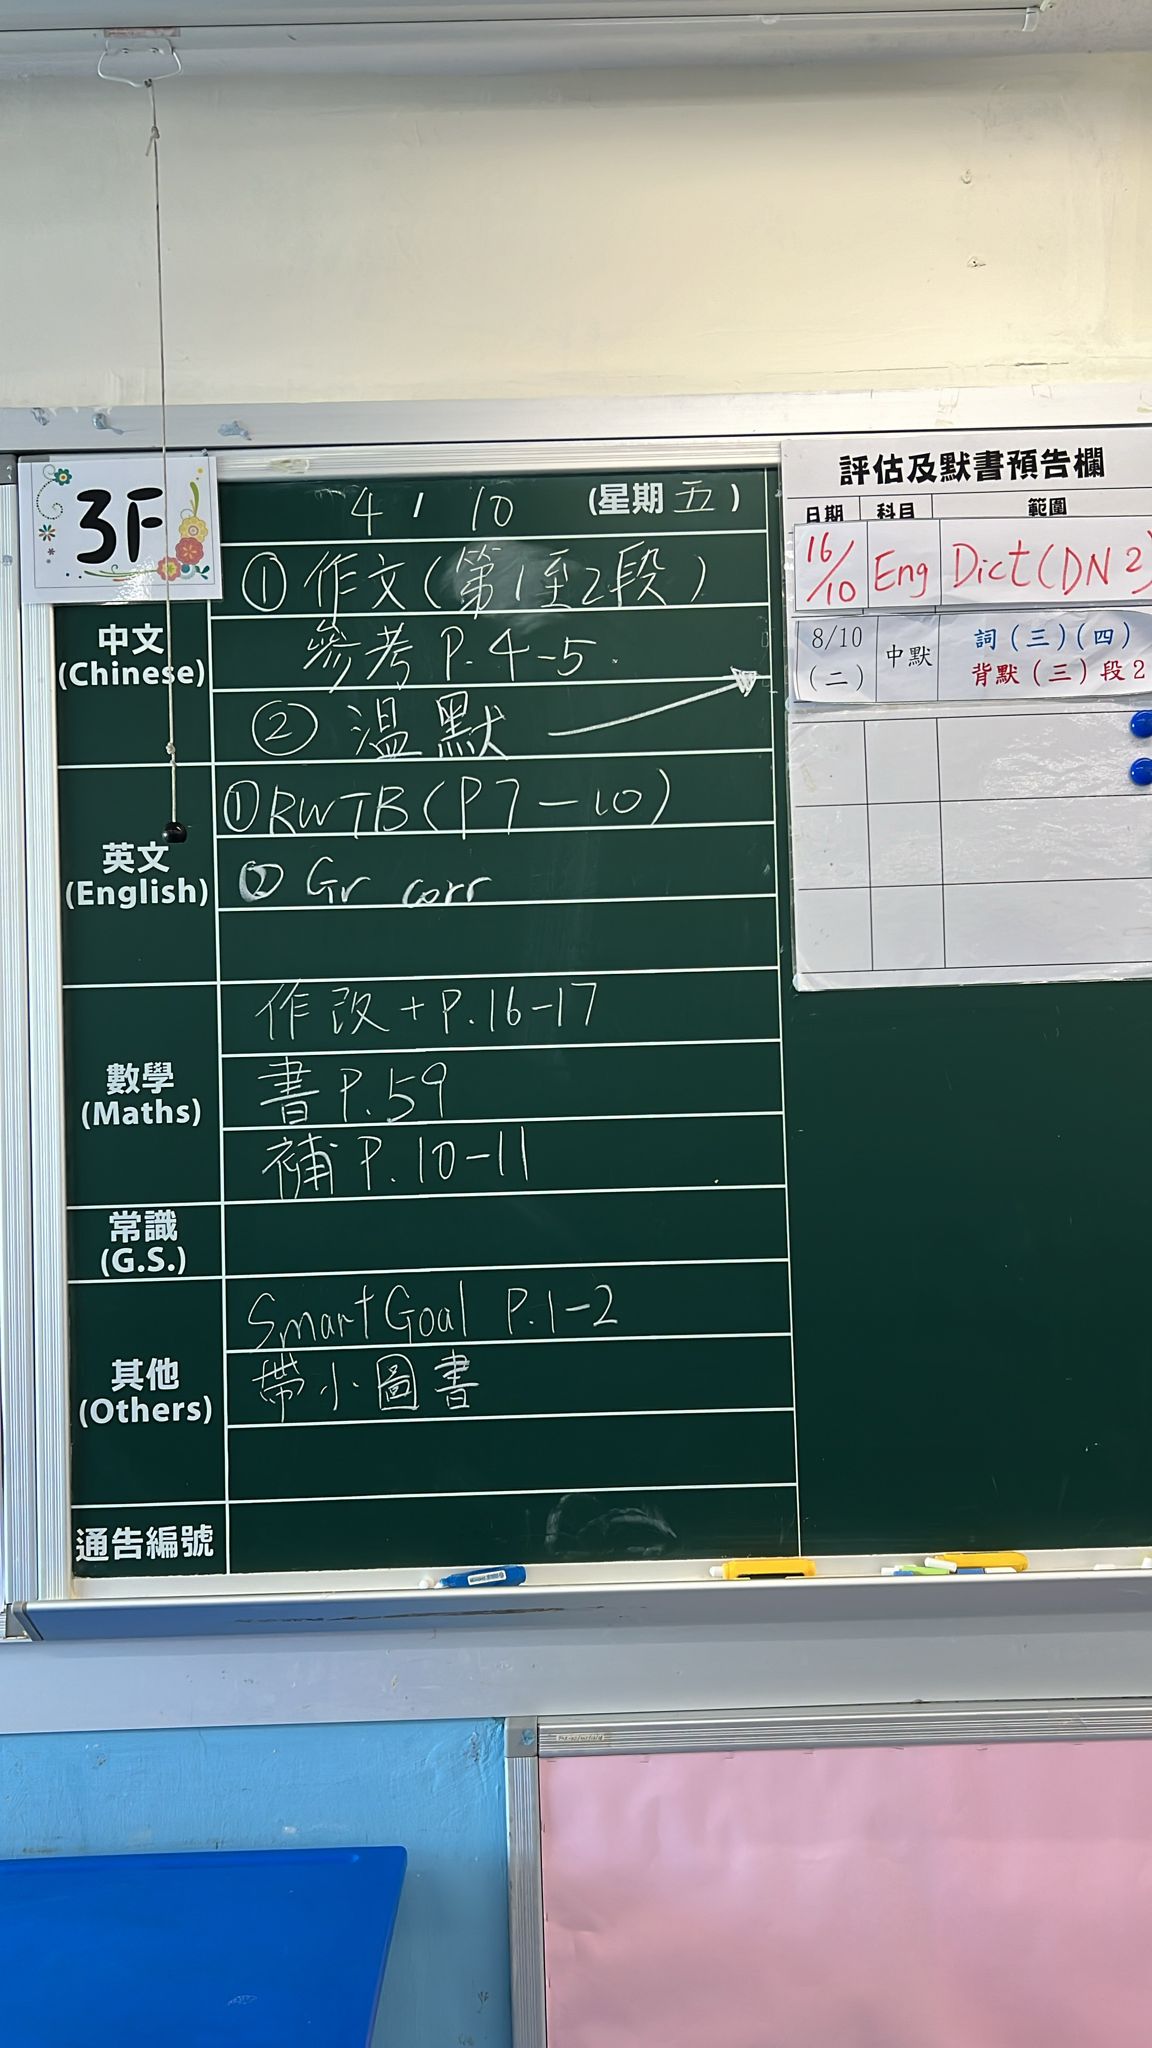 3F
4 / 10 (星期五)
中文
(Chinese)
① 作文(第1至2段)
參考 P.4-5
② 溫默
英文
(English)
① RWTB(P7-10)
② Gr corr
數學
(Maths)
作改+P.16-17
書 P.59
補 P.10-11
常識
(G.S.)
其他
(Others)
Smart Goal P.1-2
帶小圖書
通告編號
評估及默書預告欄
日期 科目 範圍
16/10 Eng Dict(DN2)
8/10
(二) 中默 詞(三)(四)
背默(三)段2